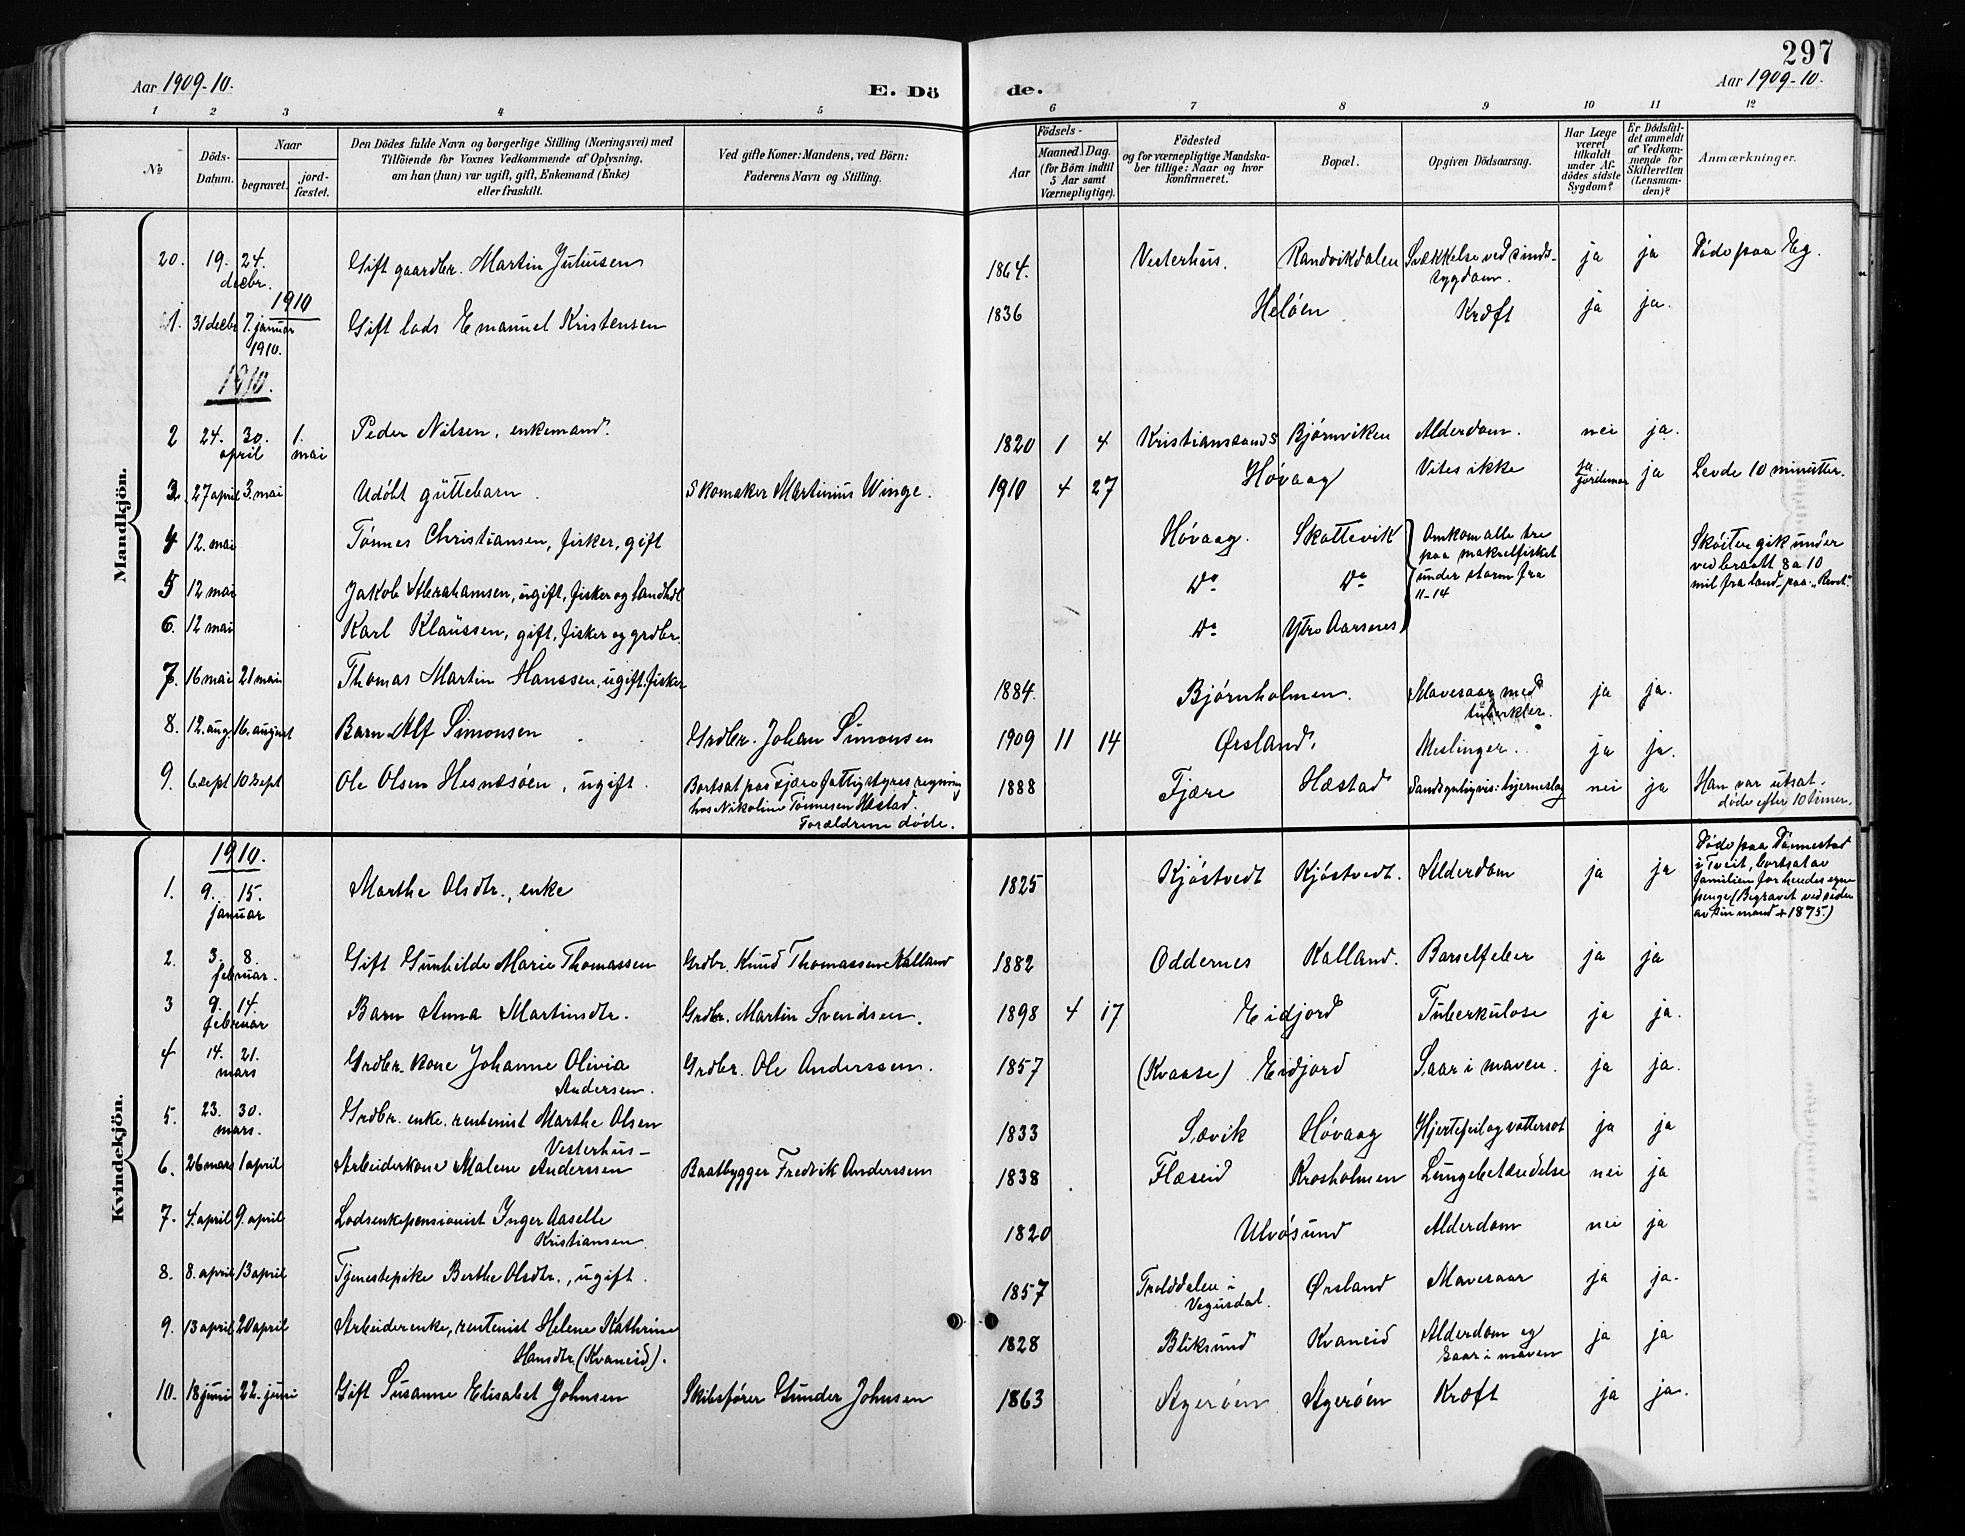 297
Aar 1909-10.
E. Dö
de.
Aar 1909-10.
1 2 3 4 5 6 7 8 9 10 11 12
No
Döds-Datum.
Naar
begravet.
jord-fæstet.
Den Dödes fulde Navn og borgerlige Stilling (Næringsvei) med
Tilföiende for Voxnes Vedkommende af Oplysning,
om han (hun) var ugift, gift, Enkemand (Enke)
eller fraskilt.
Ved gifte Koner: Mandens, ved Börn:
Faderens Navn og Stilling.
Födsels-
Aar
Maaned. Dag.
(for Börn indtil
5 Aar samt
Værnepligtige).
Födested
og for værnepligtige Mandska-
ber tillige: Naar og hvor
konfirmeret.
Bopæl.
Opgiven Dödsaarsag.
Har Læge
været
tilkaldt
under Af-
dödes sidste
Sygdom?
Er Dödsfal-
det anmeldt
af Vedkom-
mende for
Skifteretten
(Lensman-
den)?
Anmærkninger.
Mandkjön.
20. 19. 24. decbr. Gift gaardbr. Martin Juliusen 1864. Vesterhus. Randvikdalen Svækkelse ved sinds-sygdom. ja ja Døde paa Eg.
1910
1. 31 decbr 7. januar 1910. Gift lods Emanuel Kristensen 1836 Heløen Kræft ja ja.
1910.
2 24. 30. april 1. mai Peder Nilsen, enkemand. 1820 1 4 Kristianssands Bjørnviken Alderdom. nei ja.
3. 27 april 3. mai Udøbt guttebarn. Skomaker Martinius Winge. 1910 4 27 Høvaag Vites ikke ja Jordemor ja Levde 10 minutter.
4 12. mai Tønnes Christiansen, fisker, gift Høvaag. Skottevik Omkom alle tre paa makrelfisket under storm fra 11-14 Skøiten gik under ved braatt 8 a 10 mil fra land paa "Revet".
5 12 mai Jakob Abrahamsen, ugift, fisker og landhdl Do Do
6. 12 mai Karl Klaussen, gift, fisker og grdbr. Do Ytre Aarsnes
7. 16 mai 21 mai Thomas Martin Hanssen, ugift, fisker 1884. Bjørnholmen. Mavesaar med tuberkler. ja ja.
8. 12. aug 16. august Barn Alf Simonsen Grdbr. Johan Simonsen 1909 11 14 Ørsland. Meslinger. ja ja.
9. 6 sept 10 sept Ole Olsen Hesnæsøen, ugift. Bortsat paa Fjære fattigstyres regning hos Nikoline Tønnesen Hæstad. Forældrene døde. 1888 Fjære Hæstad Sandsynligvis: hjerneslag nei ja Han var utsat. døde efter 10 timer.
Kvindekjön.
1910.
1. 9. 15. januar Marthe Olsdtr., enke 1825 Kjøstvedt Kjøstvedt. Alderdom ja ja Døde paa Dønnestad i Tveit, bortsat av familien for hendes egne penge (Begravet ved siden av sin mand + 1875.)
2. 3. 8. februar. Gift Gunhilde Marie Thomassen Grdbr. Knud Thomassen Kalland 1882 Oddernes Kalland. Barselfeber ja ja
3 9. 14. februar Barn Anna Martinsdtr. Grdbr. Martin Svendsen. 1898 4 17 Eidjord Tuberkulose ja ja.
4 14. 21. mars Grdbr. kone Johanne Olivia Andersen. Grdbr. Ole Anderssen. 1857 (Kvaase) Eidjord Saar i maven. ja ja.
5. 23. 30. mars. Grdbr. enke. rentenist Marthe Olsen Vesterhus- 1833 Sævik Høvaag Hjertefeil og vattersot ja ja
6. 26 mars 1 april Arbeiderkone Malene Anderssen Baatbygger Fredrik Anderssen 1838 Flæseid Krosholmen Lungebetændelse nei ja
7. 4. april 9. april Lodsenkepensionist Inger Aaselle Kristiansen. 1820 Ulvøsund Alderdom nei ja
8. 8. april 13 april Tjenestepike Berthe Olsdtr., ugift. 1857 Trolddalen i Vegusdal. Ørsland Mavesaar ja ja.
9. 13 april 20 april Arbeiderenke, rentenist Helene Kathrine Hansdtr. (Kvaneid). 1828 Bliksund Kvaneid Alderdom og saar i maven ja ja
10. 18 juni 22. juni Gift Susanne Elisabet Johnsen Skibsfører Gunder Johnsen 1863 Agerøen Agerøen Kræft ja ja.